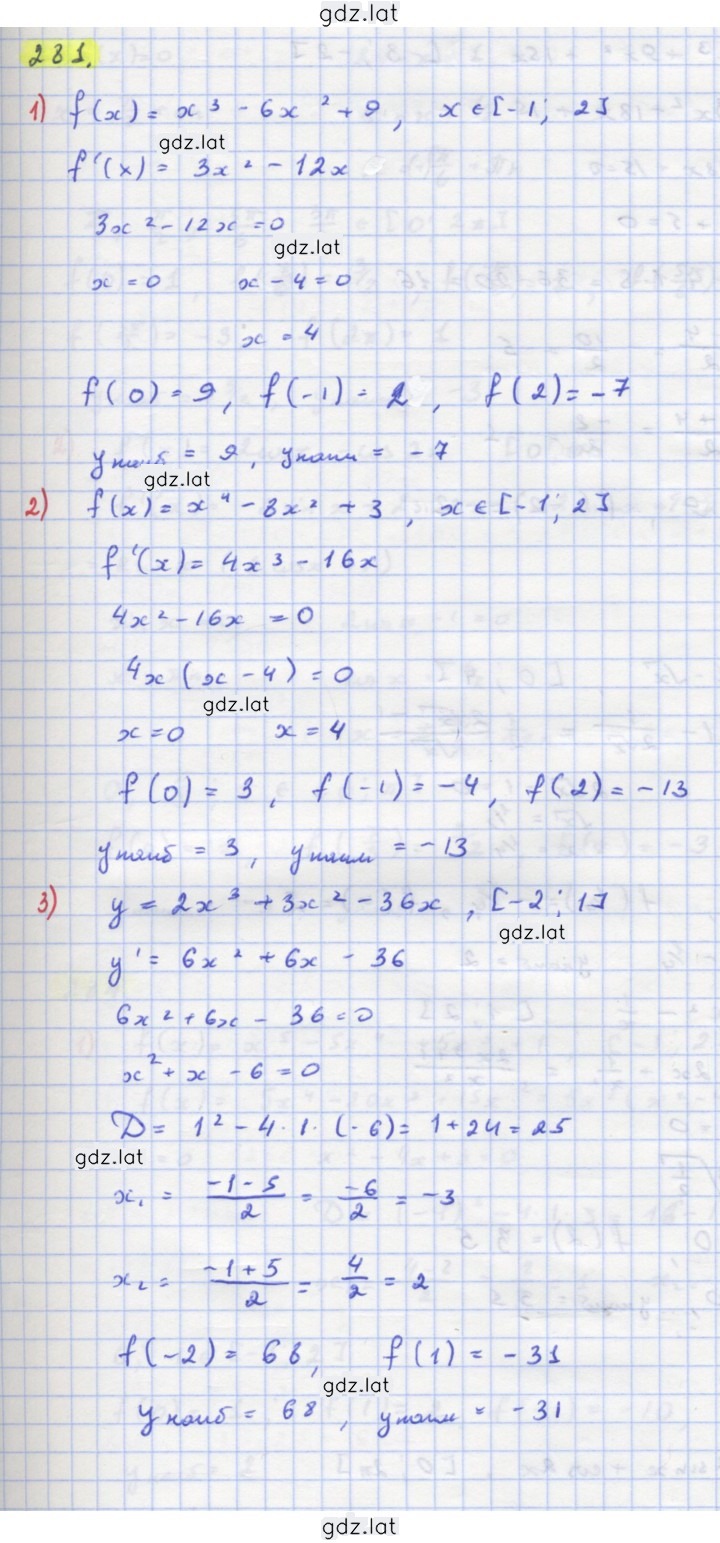 gdz.lat
281.
1) f(x) = x³ - 6x² + 9, x ∈ [-1; 2]
gdz.lat
f'(x) = 3x² - 12x
3x² - 12x = 0
gdz.lat
x = 0 x - 4 = 0
x = 4
f(0) = 9, f(-1) = 2, f(2) = -7
yнаиб = 9, yнаим = -7
gdz.lat
2) f(x) = x⁴ - 8x² + 3, x ∈ [-1; 2]
f'(x) = 4x³ - 16x
4x² - 16x = 0
4x(x - 4) = 0
gdz.lat
x = 0 x = 4
f(0) = 3, f(-1) = -4, f(2) = -13
yнаиб = 3, yнаим = -13
3) y = 2x³ + 3x² - 36x, [-2; 1]
gdz.lat
y' = 6x² + 6x - 36
6x² + 6x - 36 = 0
x² + x - 6 = 0
D = 1² - 4 · 1 · (-6) = 1 + 24 = 25
gdz.lat
x₁ = (-1-5)/2 = -6/2 = -3
x₂ = (-1+5)/2 = 4/2 = 2
f(-2) = 68, f(1) = -31
gdz.lat
yнаиб = 68, yнаим = -31
gdz.lat